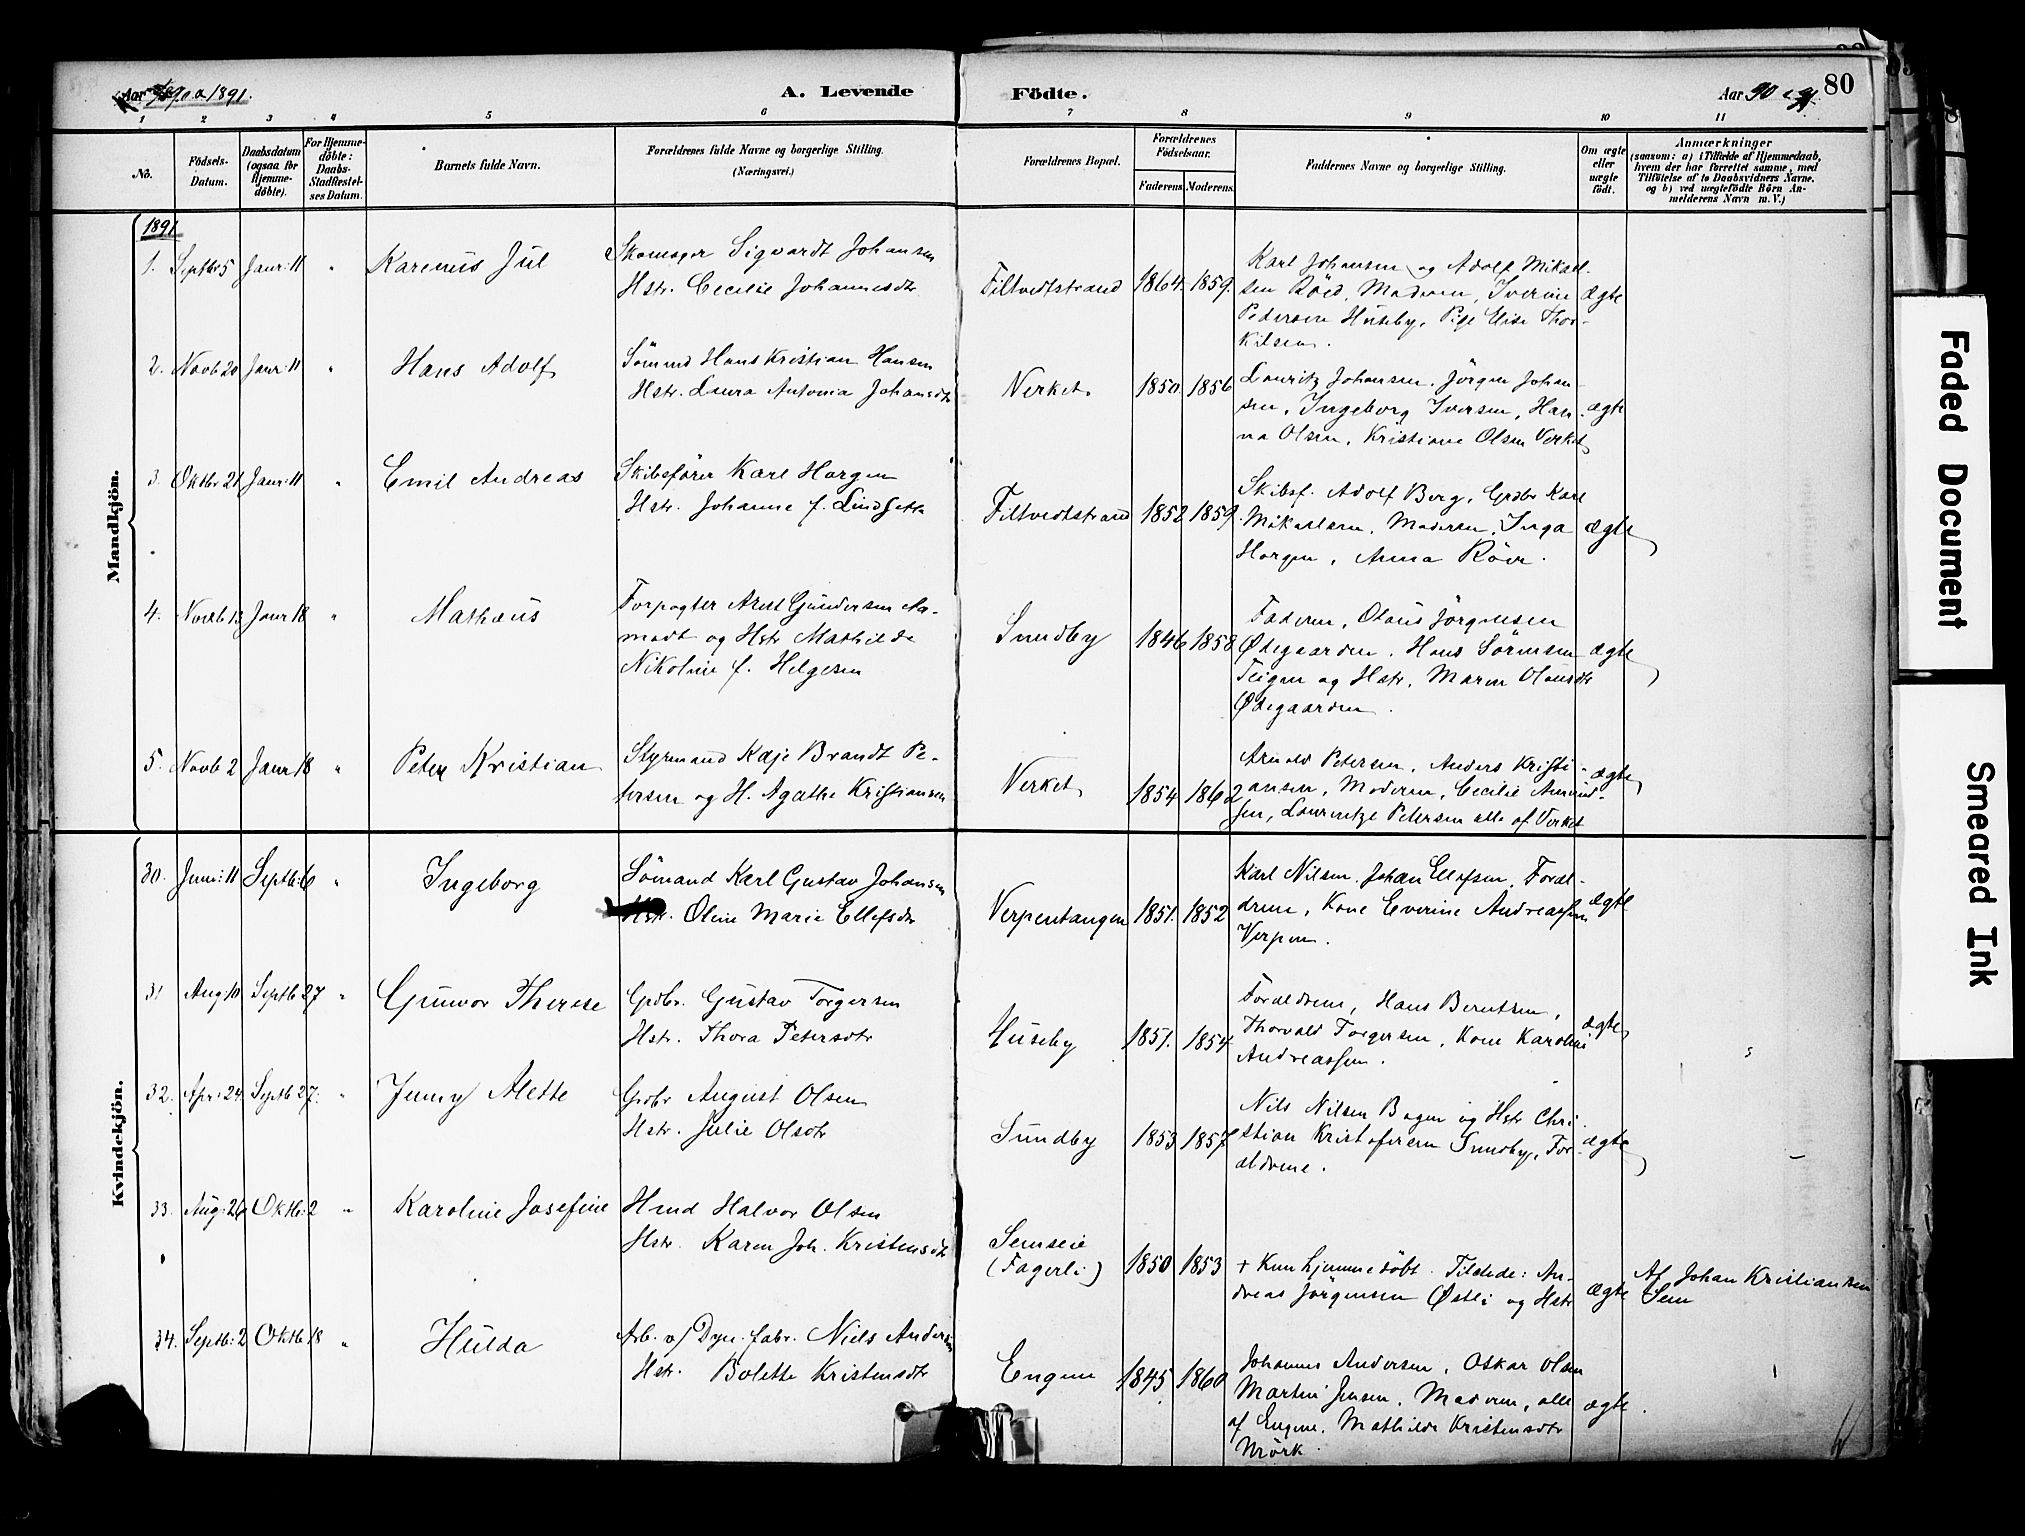 Aar 1890 a 1891.
A. Levende
Födte.
Aar 90 a 91.
80
1 2 3 4 5 6 7 8 9 10 11
No.
Födsels-
Datum.
Daabsdatum
(ogsaa for
Hjemme-
döbte).
For Hjemme-
döbte:
Daabs-
Stadfæstel-
ses Datum.
Barnets fulde Navn.
Forældrenes fulde Navne og borgerlige Stilling.
(Næringsvei.)
Forældrenes Bopæl.
Forældrenes
Födselsaar.
Faderens. Moderens.
Faddernes Navne og borgerlige Stilling.
Om ægte
eller
uægte
født.
Anmærkninger
(saasom: a) i Tilfælde af Hjemmedaab,
hvem der har forrettet samme, med
Tilföielse af to Daabsvidners Navne,
og b) ved uægtefödte Börn An-
melderens Navn m. V.)
Mandkjön.
1891
1. Septbr 5 Janr: 11 " Karenus Jul
Skomager Sigvardt Johansen
Hstr. Cecilie Johannesdtr
Filtvedtstrand 1864. 1859.
Karl Johansen og Adolf Mikael-
sen Röed, Moderen, Iverine
Pedersen Huseby, Pige Elise Thor-
kilsen.
ægte
2. Novb 20 Janr: 11 " Hans Adolf
Sömnd Hans Kristian Hansen
Hstr. Laura Antonia Johansdtr
Verket 1850. 1856
Lauritz Johansen, Jörgen Johan-
sen, Ingeborg Iversen, Han-
na Olsen, Kristiane Olsen Verket
ægte
3. Oktbr 21 Janr: 11 " Emil Andreas
Skibsförer Karl Horgen
Hstr. Johanne f.
Filtvedtstrand 1852 1859.
Skibsf. Adolf Berg, Grdbr Karl
Mikaelsen, Moderen, Inga
Horgen, Anna
ægte
4. Novb 13 Janr 18 " Mathæus
Forpagter Axel Gundersen Aa-
modt og Hstr Mathilde
Nikoline f. Helgesen
Sundby 1846 1858
Faderen, Olaus Jörgensen
Ødegaarden, Hans Sörensen
Teigen og Hstr, Maren Olausdtr
Ødegaarden.
ægte
5. Novb 2 Janr 18 " Peter Kristian
Styrmand Kaje Brandt Pe-
tersen og H. Agathe Kristiansen
Verket 1854 1862
Arnold Petersen, Anders Kristi-
ansen, Moderen, Cecilie Amund-
sen, Laurentze Petersen alle af Verket
ægte
Kvindekjön.
30. Juni: 11 Septb: 6 " Ingeborg
Sömand Karl Gustav Johansen
Hstr. Oline Marie Ellefsdtr
Verpentangen 1851. 1852
Karl Nilsen, Johan Ellefsen, Foræl-
drene, Kone Everine Andreassen
Verpen.
ægte
31 Aug: 10 Septb 27 " Gunvor Therese
Grdbr. Gustav Torgersen
Hstr. Thora Petersdtr
Huseby 1851. 1854
Forældrene, Hans Berntsen,
Thorvald Torgersen, Kone Karoline
Andreassen.
ægte
32. Apr: 24 Septb 27. " Jenny Alette
Grdbr August Olsen
Hstr. Julie Olsdtr
Sundby 1853 1857
Nils Nilsen Bogen og Hstr Chri-
stian Kristofersen Sundby, For-
ældrene.
ægte
33. Aug: 26 Oktb: 2 " Karoline Josefine
Hmd Halvor Olsen
Hstr. Karen Joh. Kristensdtr
Semseie
(Fagerli) 1850 1853
+ Kun hjemmedöbt. Tilstede: An-
dreas Jörgensen Østli og Hstr
ægte
Af Johan Kristiansen
Sem
34. Septb: 2 Oktb 18 " Hulda
Arb. v/ Dyn. fabr. Niels Andersen
Hstr. Bolette Kristensdtr
Engene 1845 1860
Johannes Andersen, Oskar Olsen
Martin Jensen, Moderen, alle
af Engene, Mathilde Kristensdtr
Mörk.
ægte.
Faded Document
Smeared Ink